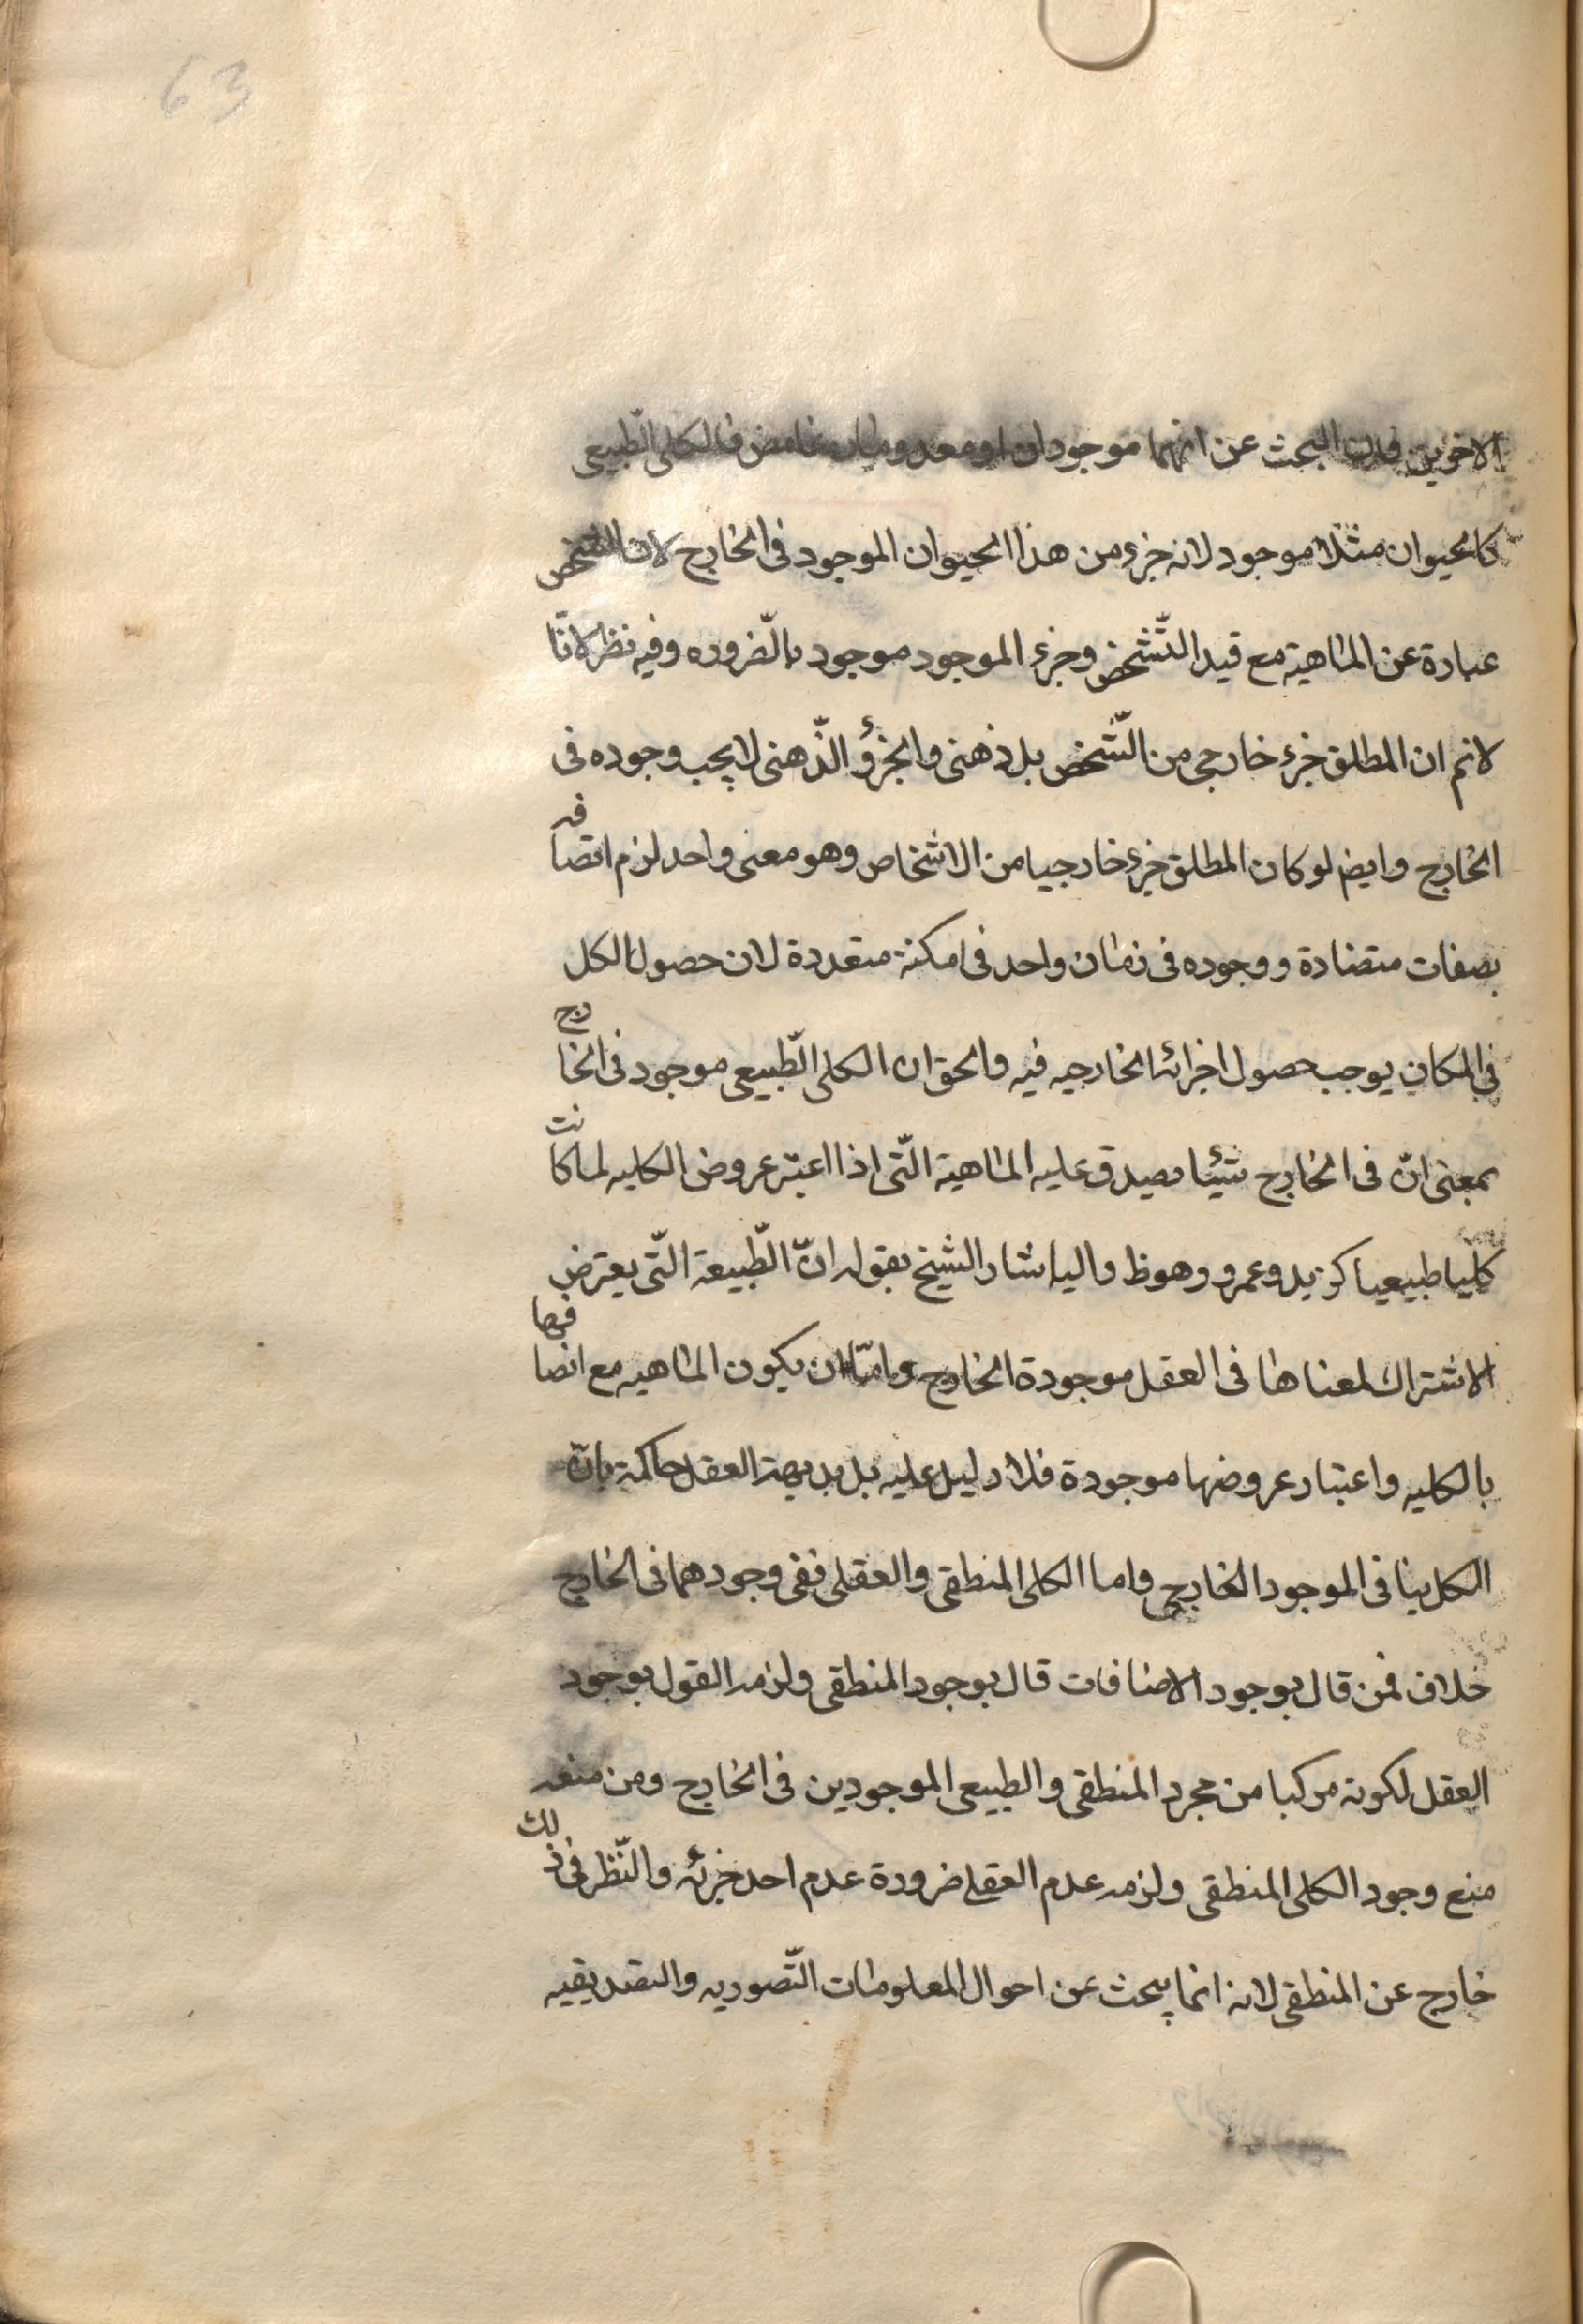 63
الاخرين فان البحث عن انهما موجودان او معدومان غامض فالكلى الطّبيعى
كالحيوان مثلا موجود لانه جزء من هذا الحيوان الموجود فى الخارج لان الشخص
عبارة عن الماهية مع قيد التّشخص وجزء الموجود موجود بالّضروره وفيه نظر لانّا
لانم ان المطلق جزء خارجى من الّشخص بل ذهنى والجزؤ الّذهنى لا يجب وجوده فى
الخارج وايض لو كان المطلق جزء خارجيا من الاشخاص وهو معنى واحد لزم اتصافه
بصفات متضادة ووجوده فى زمان واحد فى امكنة متعددة لان حصول الكل
فى المكان يوجب حصول اجزائه الخارجيه فيه والحق ان الكلى الّطبيعى موجود فى الخارج
بمعنى انّ فى الخارج شيئا يصدق عليه الماهية الّتى اذا اعتبر عروض الكليه لها كانت
كليا طبيعيا كزيد وعمرو وهو ظ واليه اشار الشيخ بقوله انّ الّطبيعة الّتى يعترض
الاشتراك لمعناها فى العقل موجودة الخارج وامّا ان يكون الماهيه مع اتصافها
بالكليه واعتبار عروضها موجودة فلا دليل عليه بل بديهة العقل حاكمة بانّ
الكل ينافى الموجود الخارجى واما الكلى المنطقى والعقلى ففى وجودهما فى الخارج
خلاف فمن قال بوجود الاضافات قال بوجود المنطقى ولزمه القول بوجود
العقل لكونه مركبا من مجرد المنطقى والطبيعى الموجودين فى الخارج ومن منعه
منع وجود الكلى المنطقى ولزمه عدم العقلى ضرورة عدم احد جزئه والنّظر فى ذلك
خارج عن المنطقى لانه انما يبحث عن احوال المعلومات التّصوريه والتصديقيه